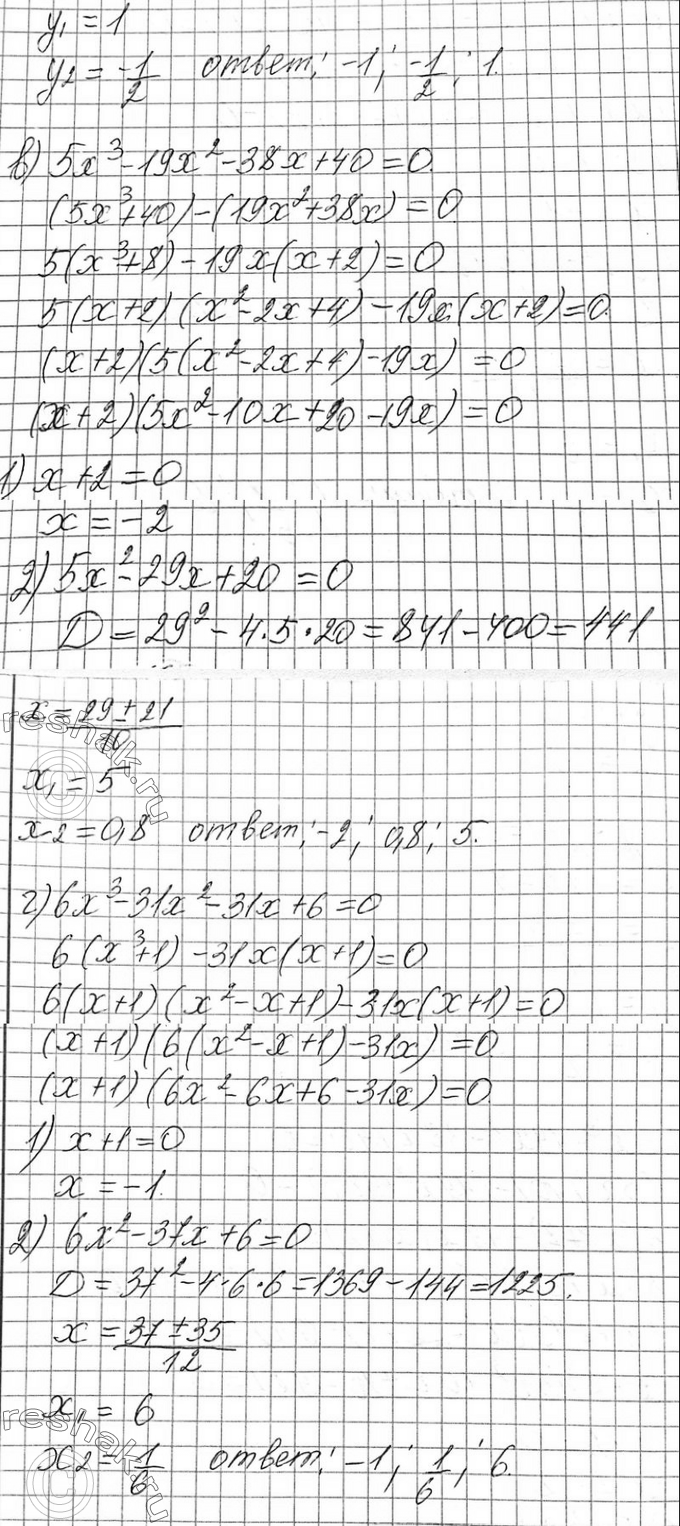 y₁ = 1
y₂ = -1/2 ответ: -1; -1/2; 1.
в) 5x³ - 19x² - 38x + 40 = 0.
(5x³ + 40) - (19x² + 38x) = 0
5(x³ + 8) - 19x(x + 2) = 0
5(x + 2)(x² - 2x + 4) - 19x(x + 2) = 0.
(x + 2)(5(x² - 2x + 4) - 19x) = 0
(x + 2)(5x² - 10x + 20 - 19x) = 0
1) x + 2 = 0
x = -2
2) 5x² - 29x + 20 = 0
D = 29² - 4·5·20 = 841 - 400 = 441
x = (29 ± 21)/10
x₁ = 5
x₂ = 0,8 ответ: -2; 0,8; 5.
г) 6x³ - 31x² - 31x + 6 = 0
6(x³ + 1) - 31x(x + 1) = 0
6(x + 1)(x² - x + 1) - 31x(x + 1) = 0
(x + 1)(6(x² - x + 1) - 31x) = 0
(x + 1)(6x² - 6x + 6 - 31x) = 0.
1) x + 1 = 0
x = -1.
2) 6x² - 37x + 6 = 0
D = 37² - 4·6·6 = 1369 - 144 = 1225.
x = (37 ± 35)/12
x₁ = 6
x₂ = 1/6 ответ: -1; 1/6; 6.
reshak.ru
reshak.ru